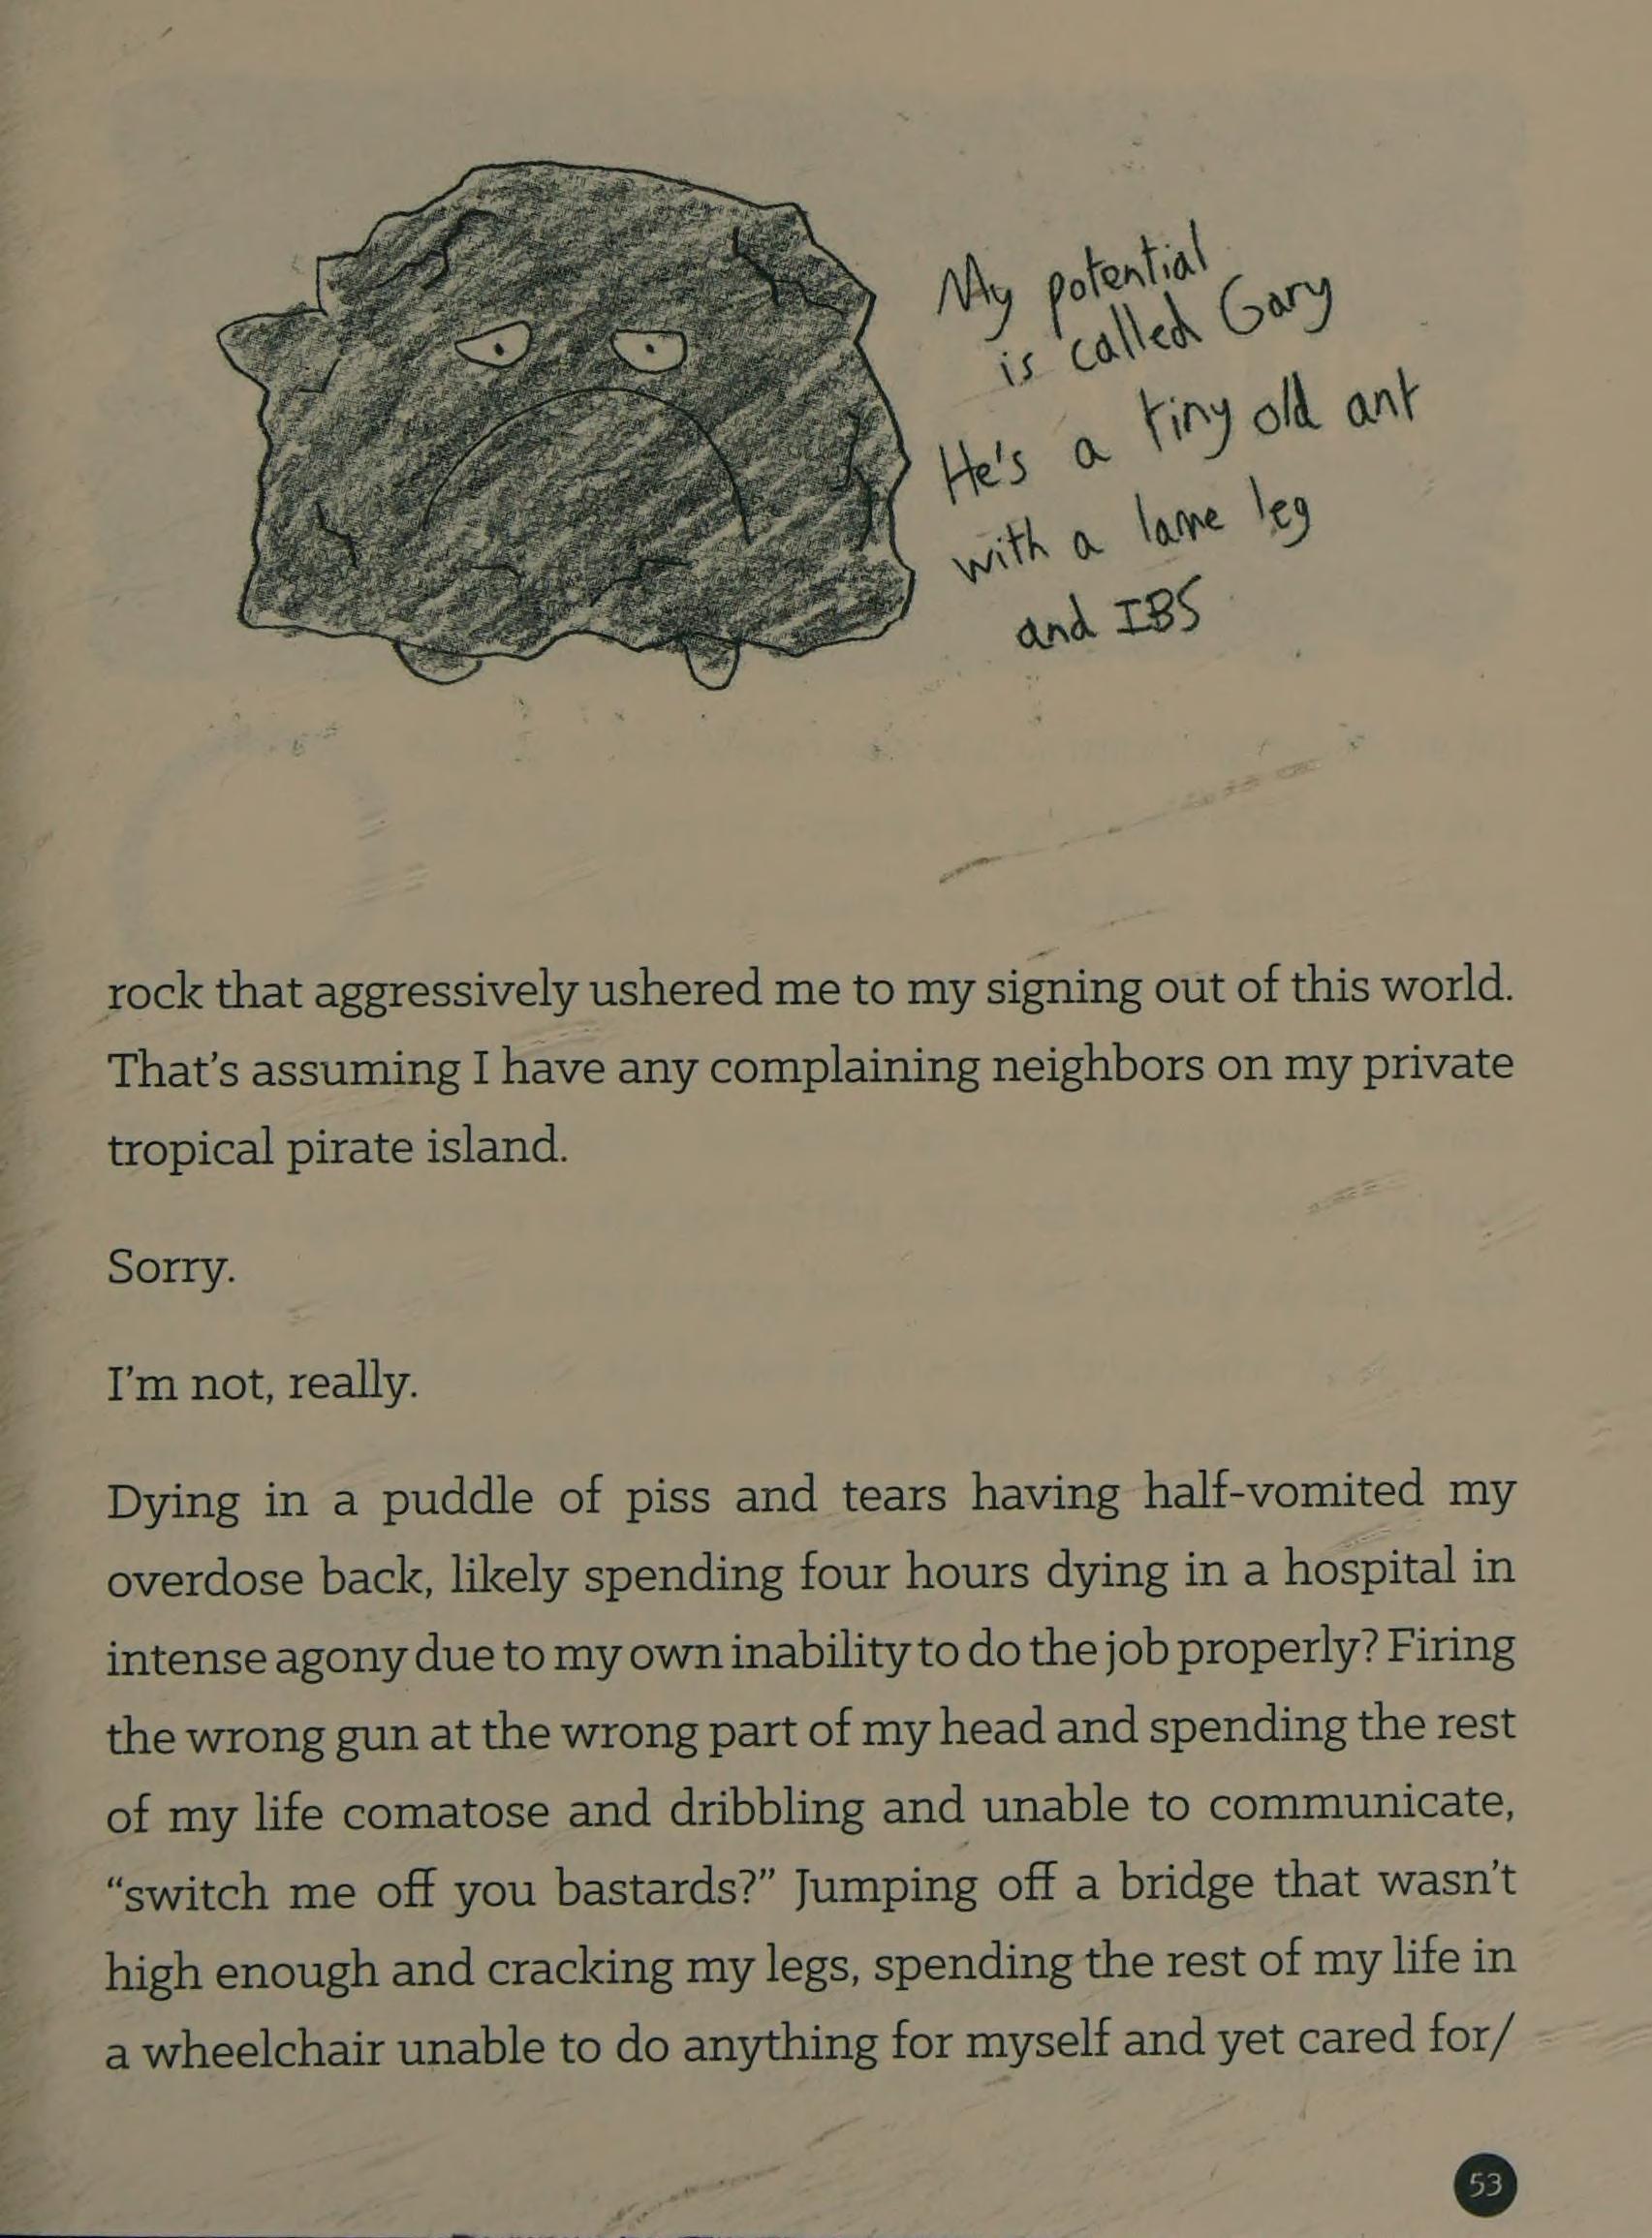 My potential
is called Gary
He's a tiny old ant
with a lame leg
and IBS
rock that aggressively ushered me to my signing out of this world.
That's assuming I have any complaining neighbors on my private
tropical pirate island.
Sorry.
I'm not, really.
Dying in a puddle of piss and tears having half-vomited my
overdose back, likely spending four hours dying in a hospital in
intense agony due to my own inability to do the job properly? Firing
the wrong gun at the wrong part of my head and spending the rest
of my life comatose and dribbling and unable to communicate,
“switch me off you bastards?” Jumping off a bridge that wasn't
high enough and cracking my legs, spending the rest of my life in
a wheelchair unable to do anything for myself and yet cared for/
53